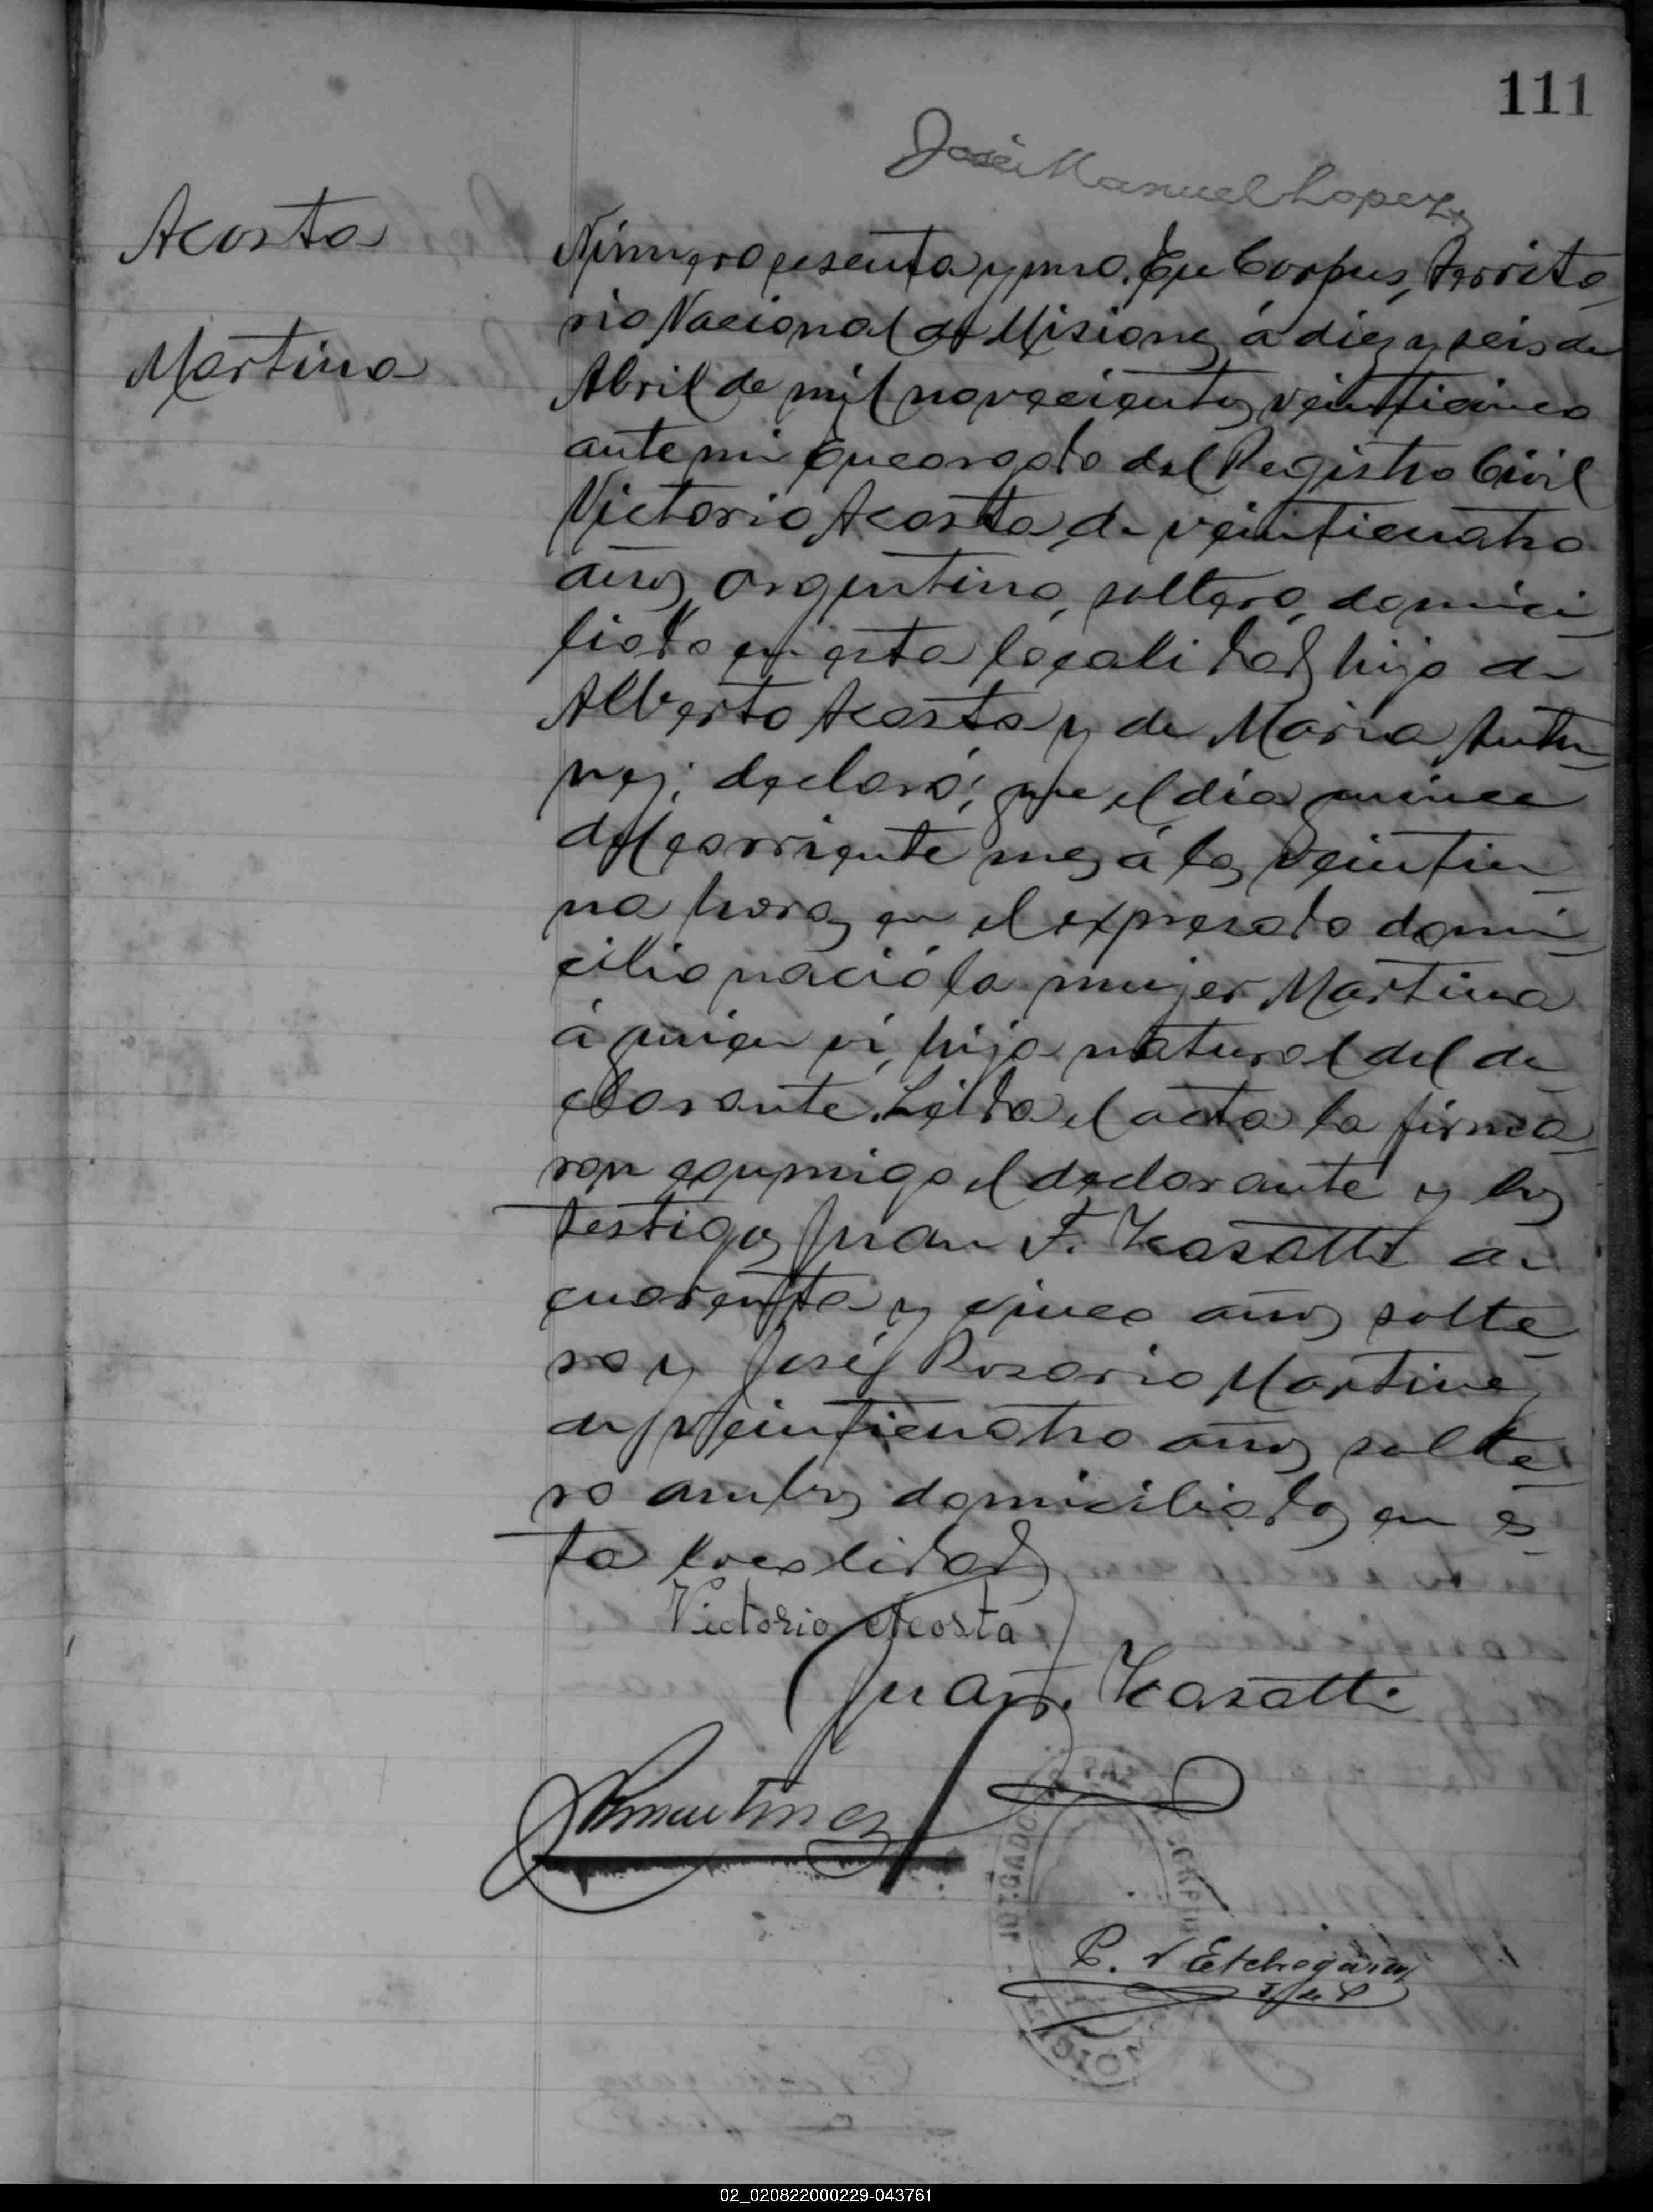 111
José Manuel Lopez
Acosta
Martina
Número sesenta y uno. En Corpus, Territo
rio Nacional de Misiones, á diez y seis de
Abril de mil novecientos veinticinco
ante mi Encargado del Registro Civil
Victorio Acosta de veinticuatro
años, argentino, soltero, domici
liado en esta localidad, hijo de
Alberto Acosta y de Maria Antu
nez; declaró: que el día quince
del corriente mes á las veintiu
na horas en el expresado domi
cilio nació la mujer Martina
á quien ví, hija natural del de
clarante. Leida el acta la firma
ron conmigo el declarante y los
testigos Juan F. Kasatti de
cuarenta y cinco años solte
ro y José Rosario Martinez
de veinticuatro años, solte
ro ambos domiciliados en es
ta localidad
Victorio Acosta
Juan F. Kasatti
Martinez
JUZGADO DE PAZ CORPUS MISIONES
P. N Etchegaray
J. de P
02_020822000229-043761